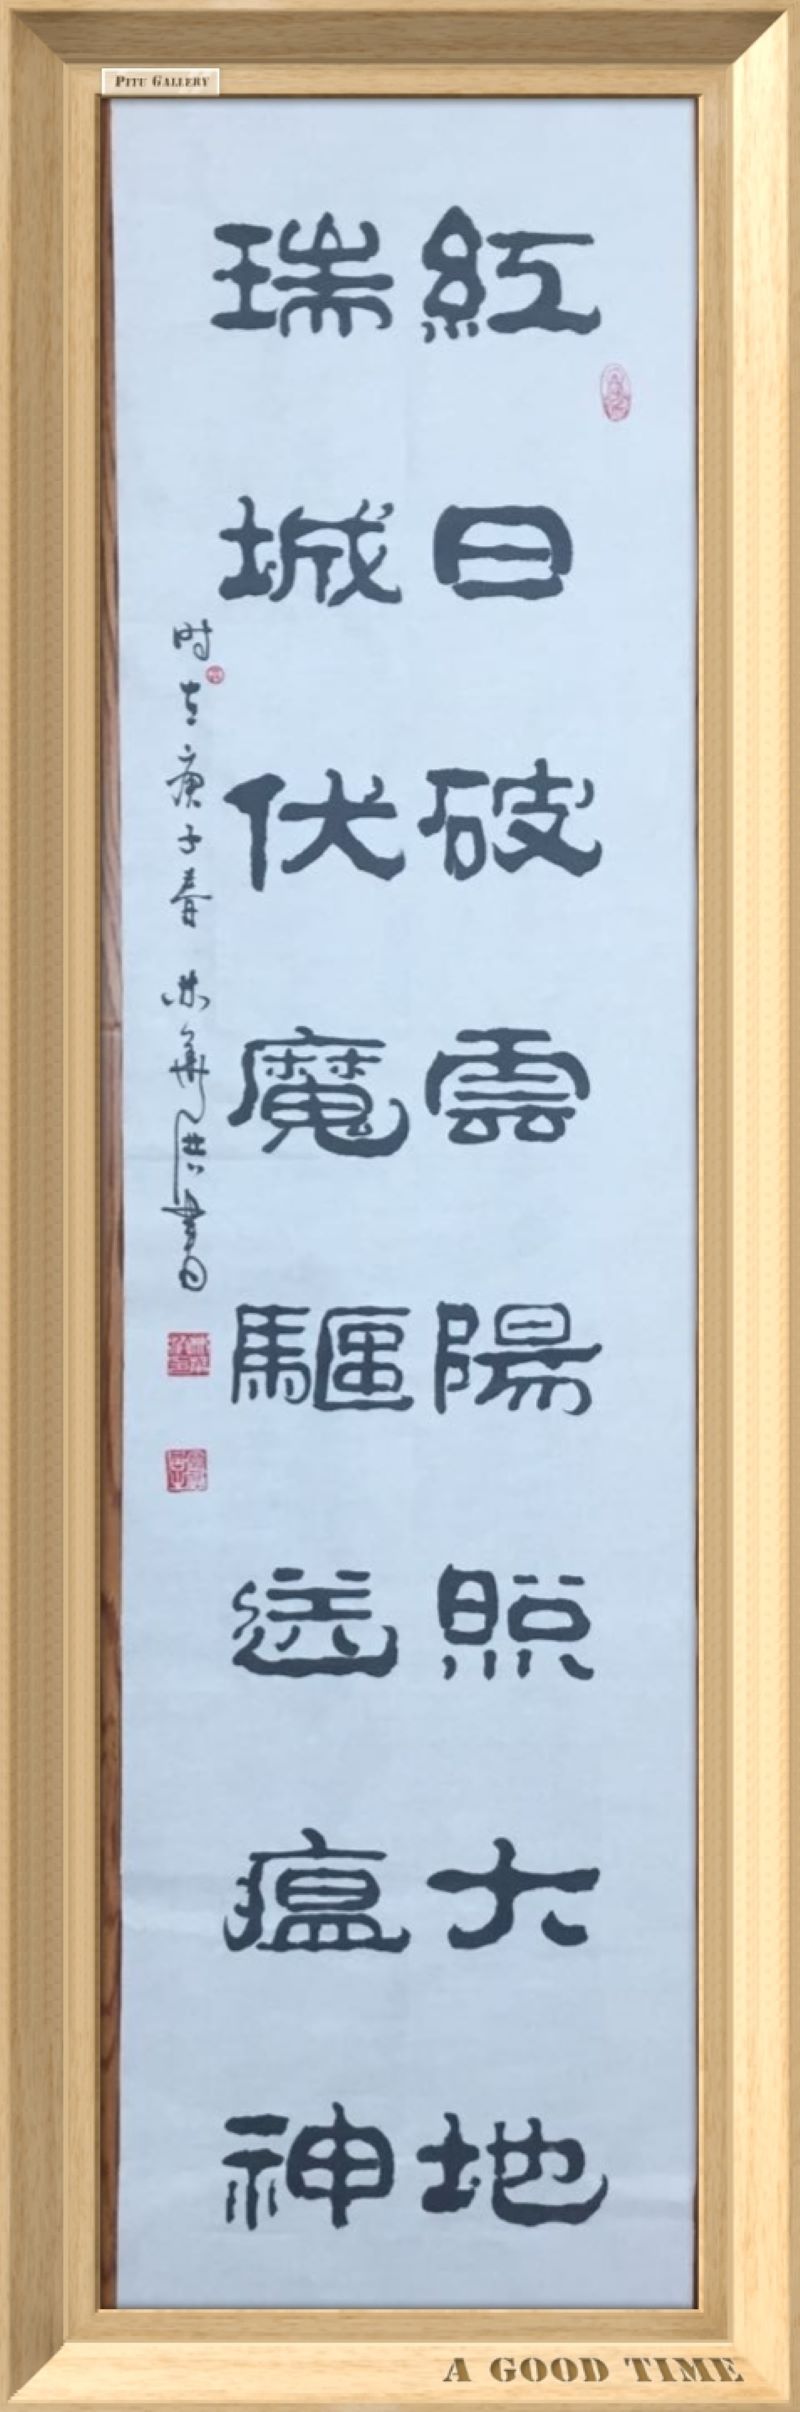 PITU GALLERY
紅日破雲陽照大地
瑞城伏魔驅送瘟神
时在庚子春林華洪書
A GOOD TIME